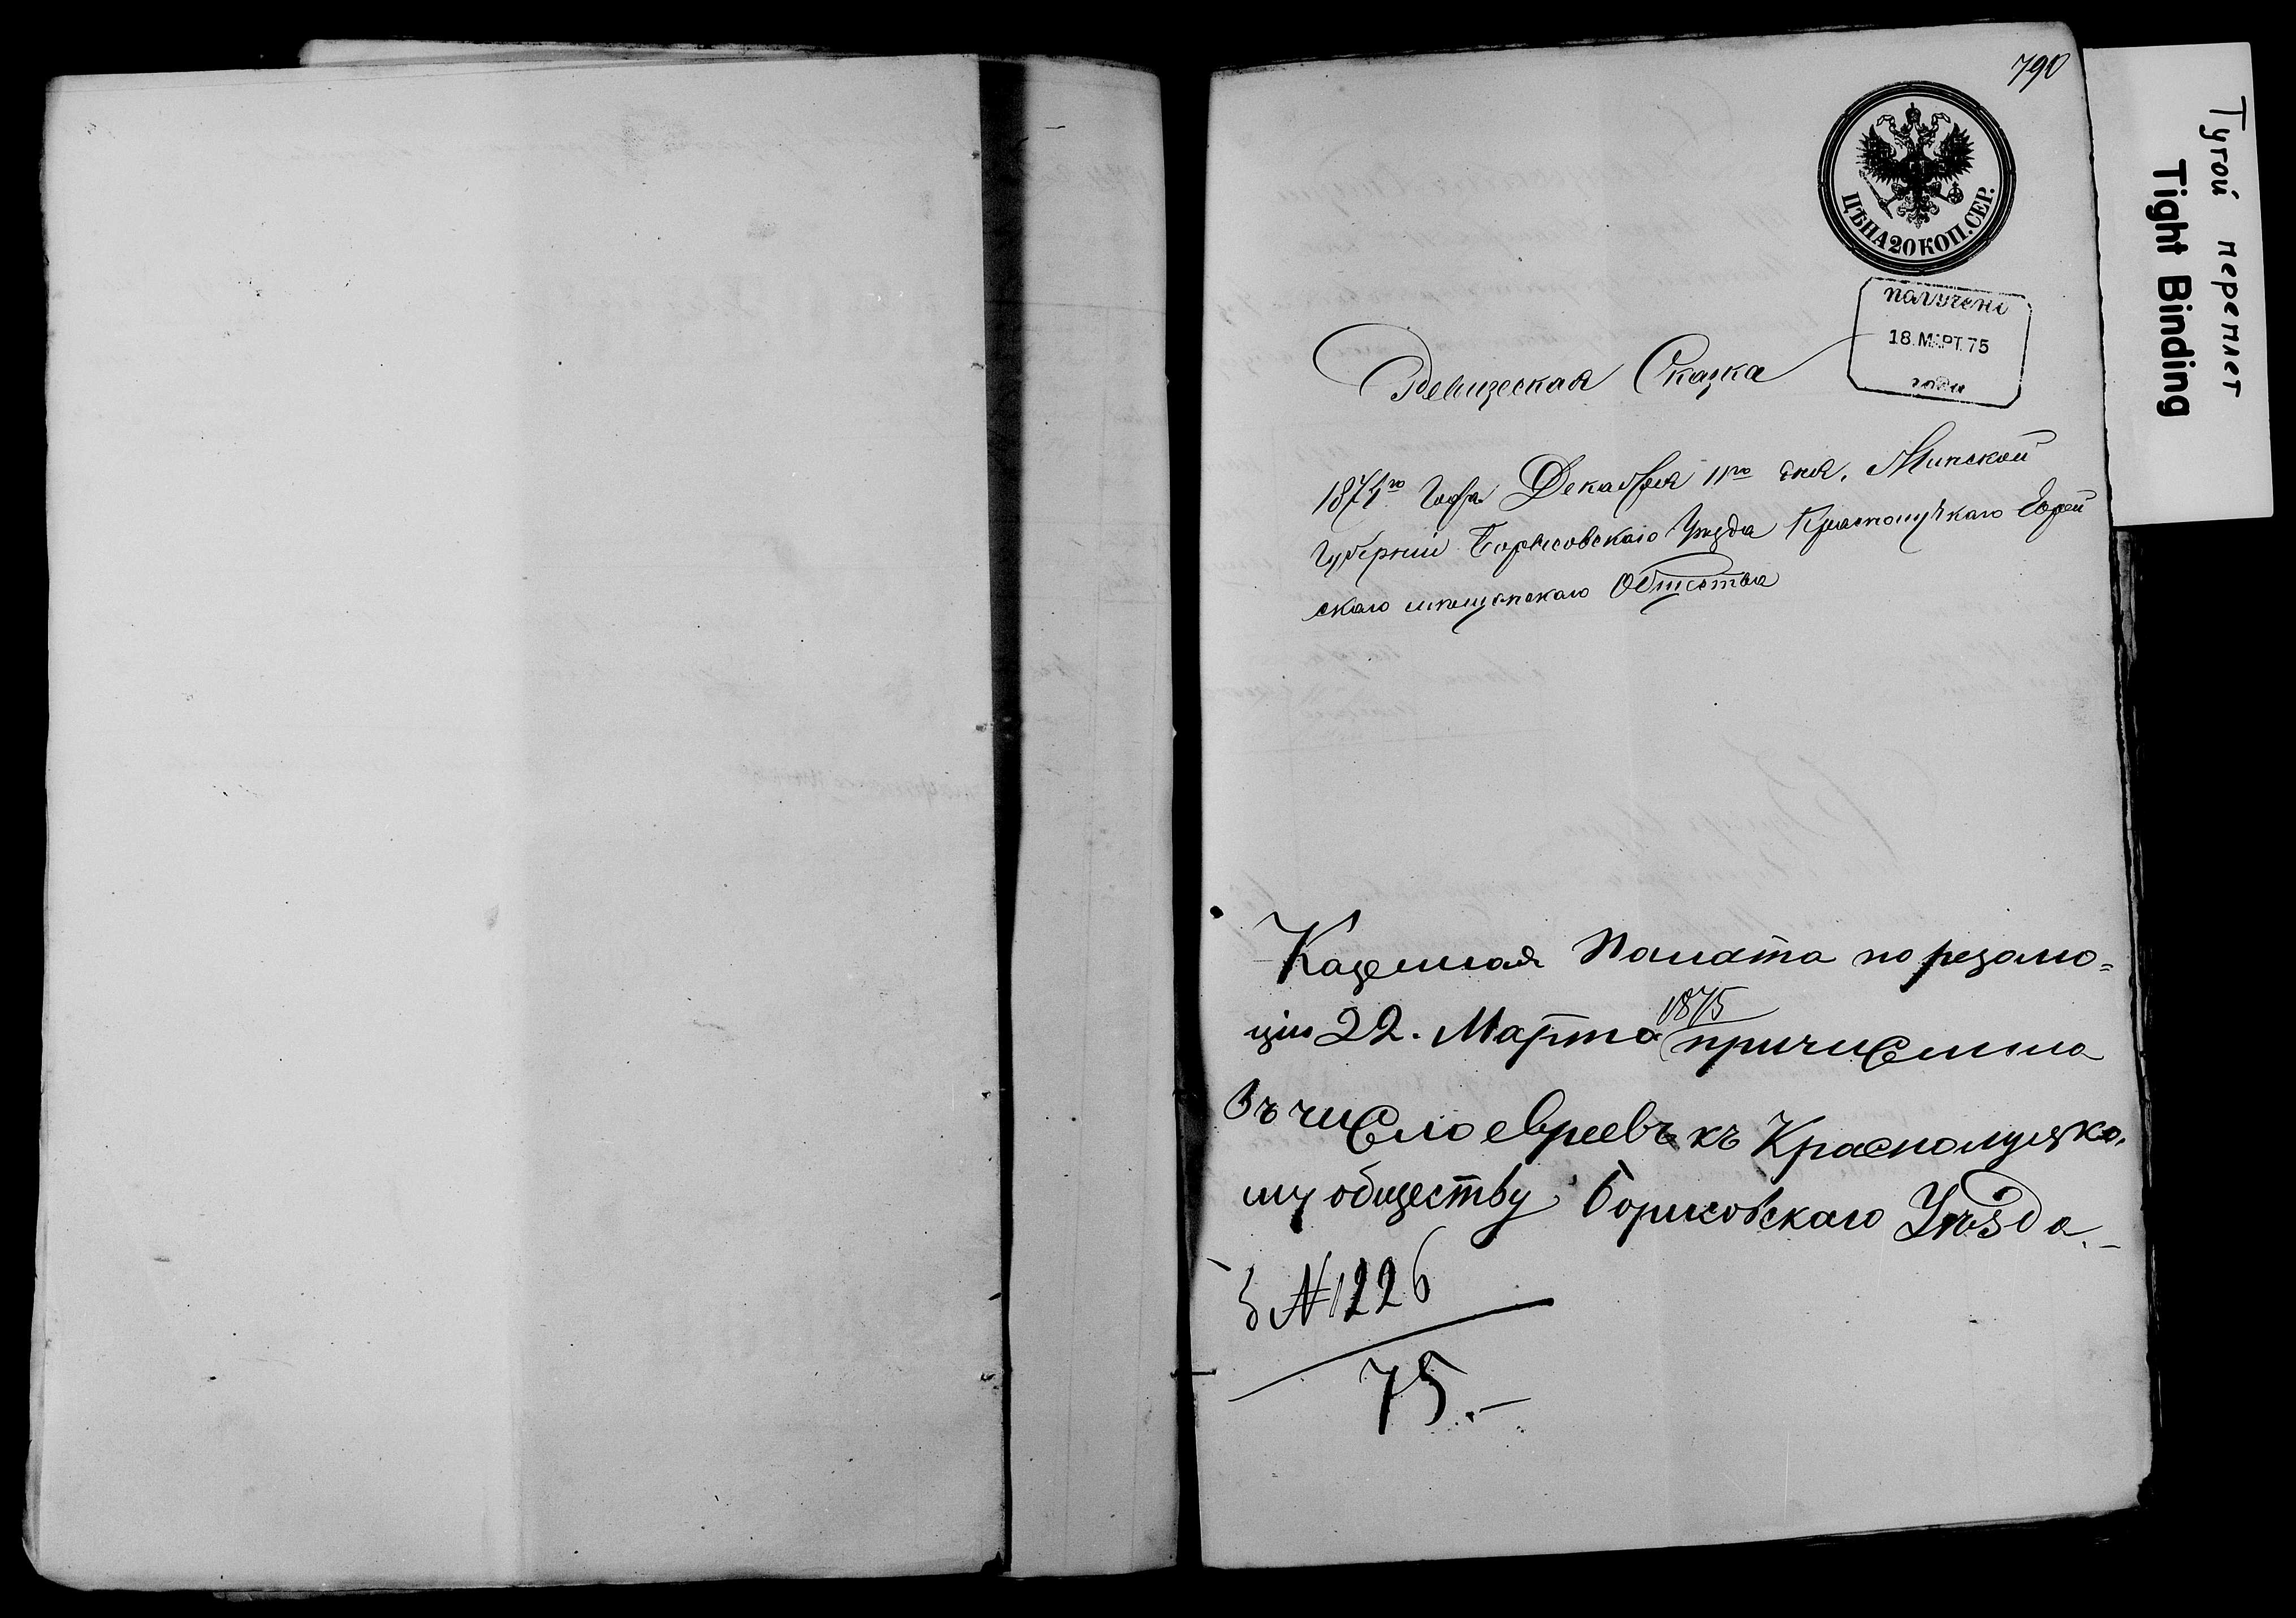 790
ЦѢНА 20 КОП. СЕР.
получено
18. МАРТ. 75
года
Ревизская Сказка
1874го Года Декабря 11го дня, Минской
Губерніи Борисовскаго Уезда Краснолуцкаго Еврей
скаго мѣщанскаго Общества
Казенная Палата по резолю=
ціи 22. Марта 1875 причислила
въ число евреевъ къ Краснолуцко-
му обществу Борисовскаго Уѣзда.-
№1226
75.-
Тугой переплет
Tight Binding